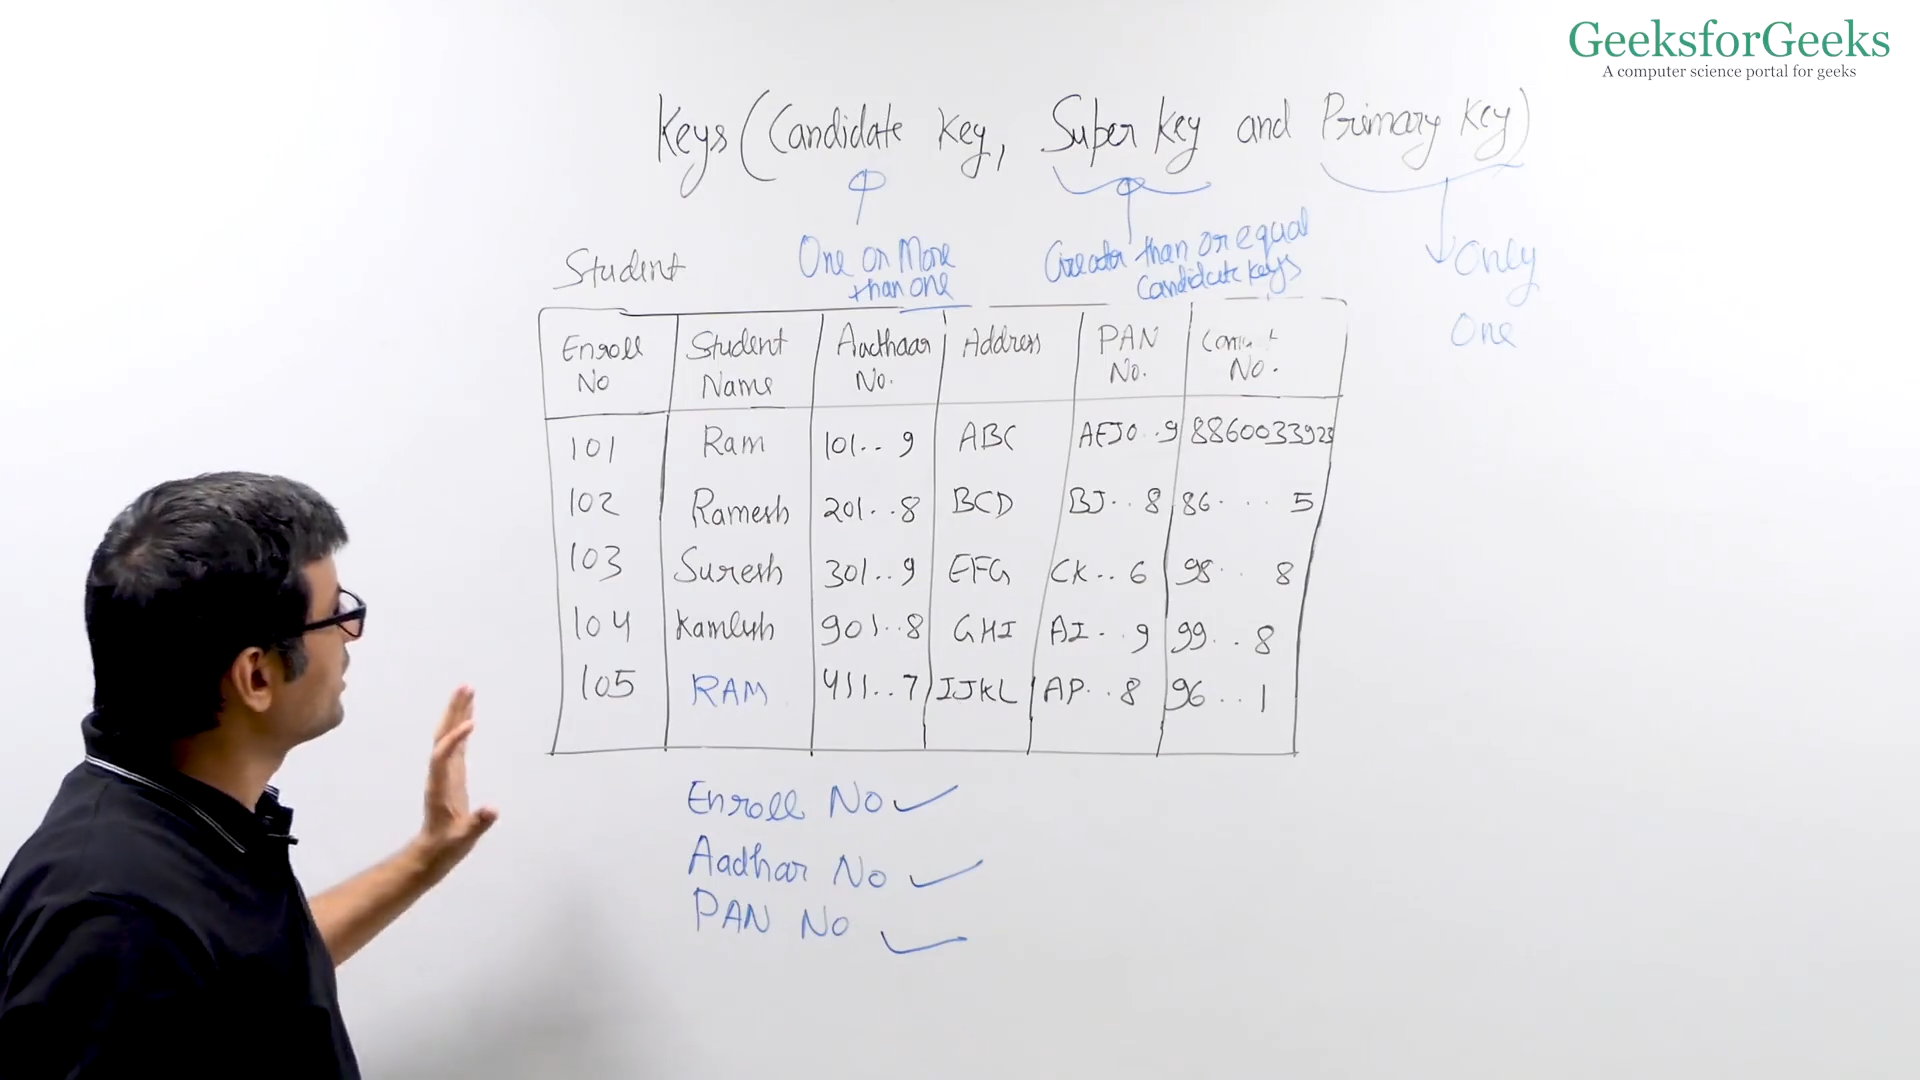 GeeksforGeeks
A computer science portal for geeks
Keys (Candidate Key, Super Key and Primary Key)
One or More
than one
Greater than or equal
Candidate Keys
Only
One
Student
Enroll No
Student Name
Aadhaar No.
Address
PAN No.
No.
101 Ram 101.. 9 ABC AEJO..9
102 Ramesh 201..8 BCD BJ..8 86.... 5
103 Suresh 301..9 EFG CK..6 98.. 8
104 Kamlesh 901..8 GHI AI..9 99...8
105 RAM 411..7 IJKL AP..8 96...1
Enroll No ✓
Aadhar No ✓
PAN No ✓